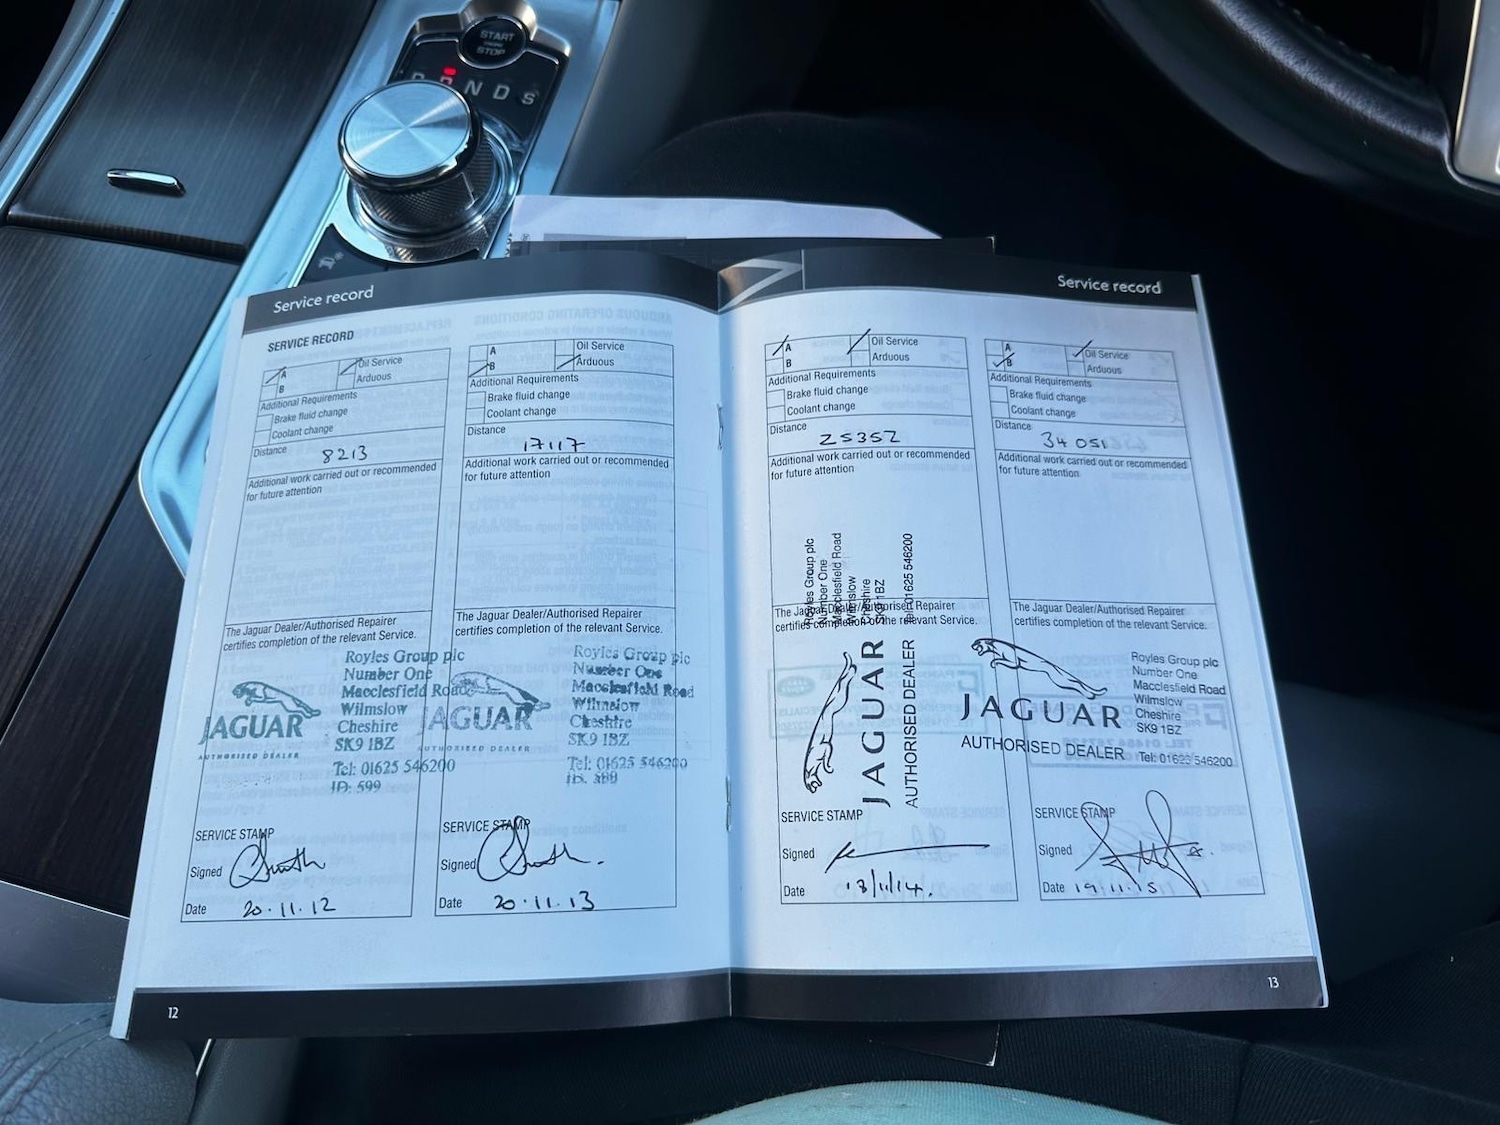 START
STOP
R N D S
Service record
SERVICE RECORD
A
Oil Service
B
Arduous
Additional Requirements
Brake fluid change
Coolant change
Distance
8213
Additional work carried out or recommended
for future attention
The Jaguar Dealer/Authorised Repairer
certifies completion of the relevant Service.
Royles Group plc
Number One
Macclesfield Road
Wilmslow
Cheshire
SK9 1BZ
Tel: 01625 546200
ID: 599
JAGUAR
AUTHORISED DEALER
SERVICE STAMP
Signed
Date 20.11.12
A
Oil Service
B
Arduous
Additional Requirements
Brake fluid change
Coolant change
Distance
17117
Additional work carried out or recommended
for future attention
The Jaguar Dealer/Authorised Repairer
certifies completion of the relevant Service.
Royles Group plc
Number One
Macclesfield Road
Wilmslow
Cheshire
SK9 1BZ
Tel: 01625 546200
JAGUAR
AUTHORISED DEALER
SERVICE STAMP
Signed
Date 20.11.13
12
Service record
A
Oil Service
B
Arduous
Additional Requirements
Brake fluid change
Coolant change
Distance
25352
Additional work carried out or recommended
for future attention
The Jaguar Dealer/Authorised Repairer
certifies completion of the relevant Service.
Royles Group plc
Number One
Macclesfield Road
Wilmslow
Cheshire
SK9 1BZ
Tel: 01625 546200
JAGUAR
AUTHORISED DEALER
SERVICE STAMP
Signed
Date 13/11/14.
A
Oil Service
B
Arduous
Additional Requirements
Brake fluid change
Coolant change
Distance
34051
Additional work carried out or recommended
for future attention
The Jaguar Dealer/Authorised Repairer
certifies completion of the relevant Service.
Royles Group plc
Number One
Macclesfield Road
Wilmslow
Cheshire
SK9 1BZ
Tel: 01625 546200
JAGUAR
AUTHORISED DEALER
SERVICE STAMP
Signed
Date 19.11.15
13